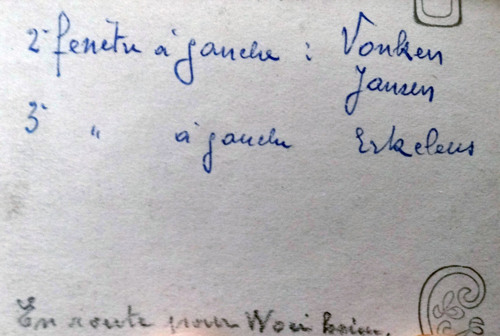 2e fenêtre à gauche : Vonken
Jansen
3e " à gauche Erkelens
En route pour